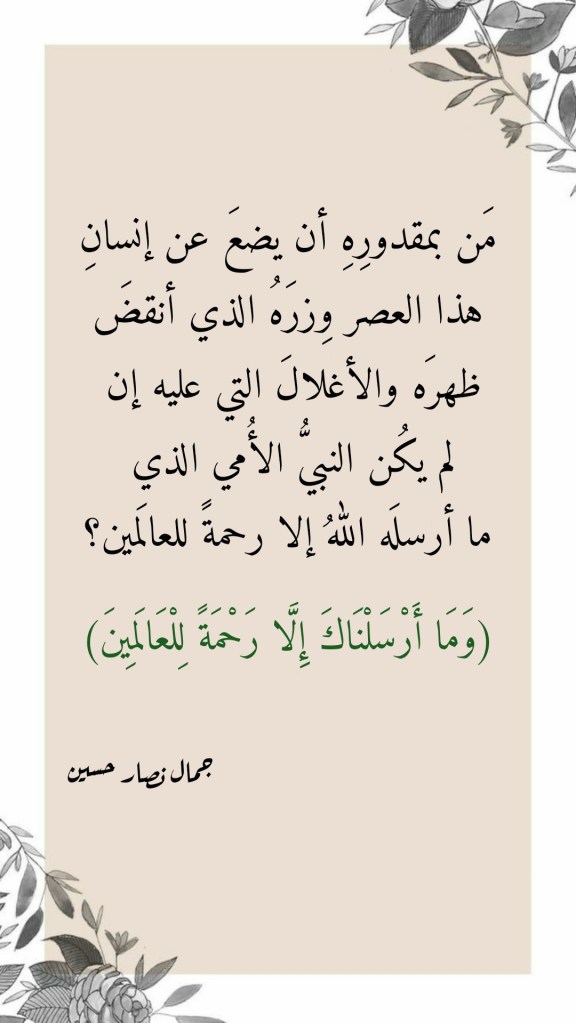 مَن بمقدورِهِ أن يضعَ عن إنسانِ
هذا العصر وِزرَهُ الذي أنقضَ
ظهرَه والأغلالَ التي عليه إن
لم يكُن النبيُّ الأُمي الذي
ما أرسلَه اللهُ إلا رحمةً للعالَمين؟
(وَمَا أَرْسَلْنَاكَ إِلَّا رَحْمَةً لِلْعَالَمِينَ)
جمال نصار حسين